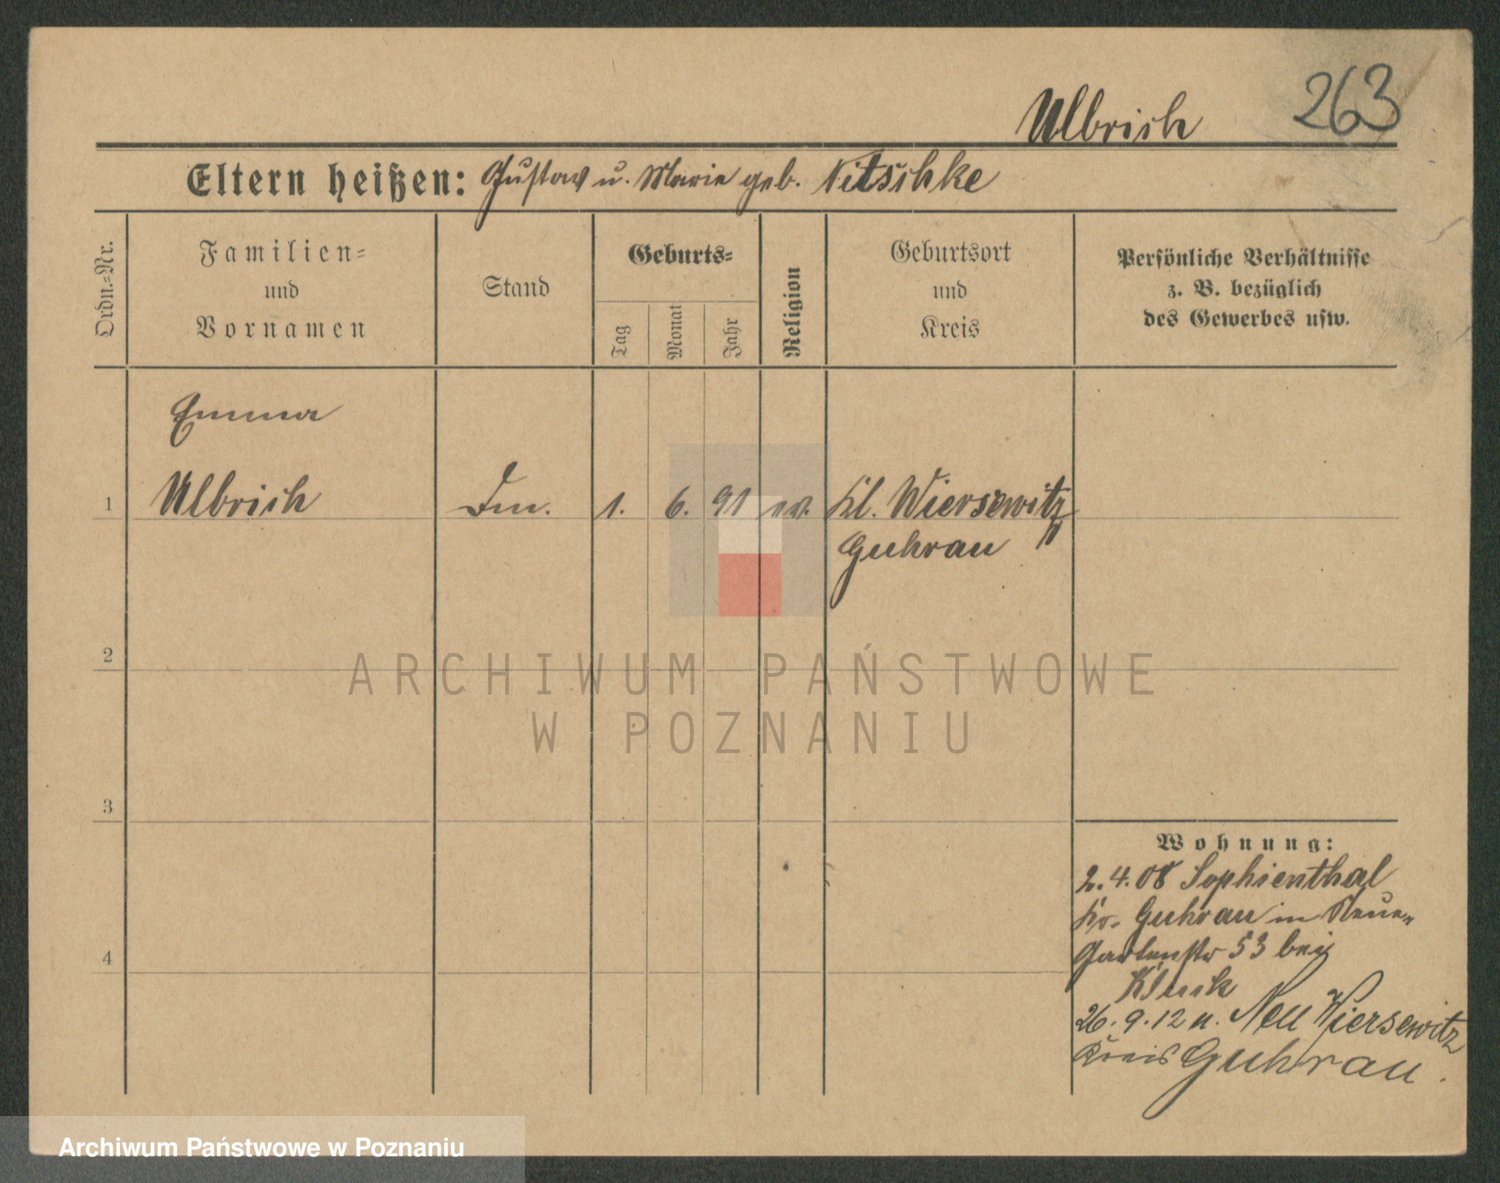 Ulbrich
263
Eltern heißen: Gustav u. Marie geb. Nitschke
Ordn.-Nr.
Familien-
und
Vornamen
Stand
Geburts-
Tag
Monat
Jahr
Religion
Geburtsort
und
Kreis
Persönliche Verhältnisse
z. B. bezüglich
des Gewerbes usw.
Emma
1 Ulbrich 1. 6. 91 ev. Kl. Wiersewitz
Guhrau
2
ARCHIWUM PAŃSTWOWE
W POZNANIU
3
Wohnung:
2.4.08 Sophienthal
Kr. Guhrau in Neue
4
Gartenstr 53 bei
26.9.12 n. Neu Wiersewitz
Kreis Guhrau.
Archiwum Państwowe w Poznaniu